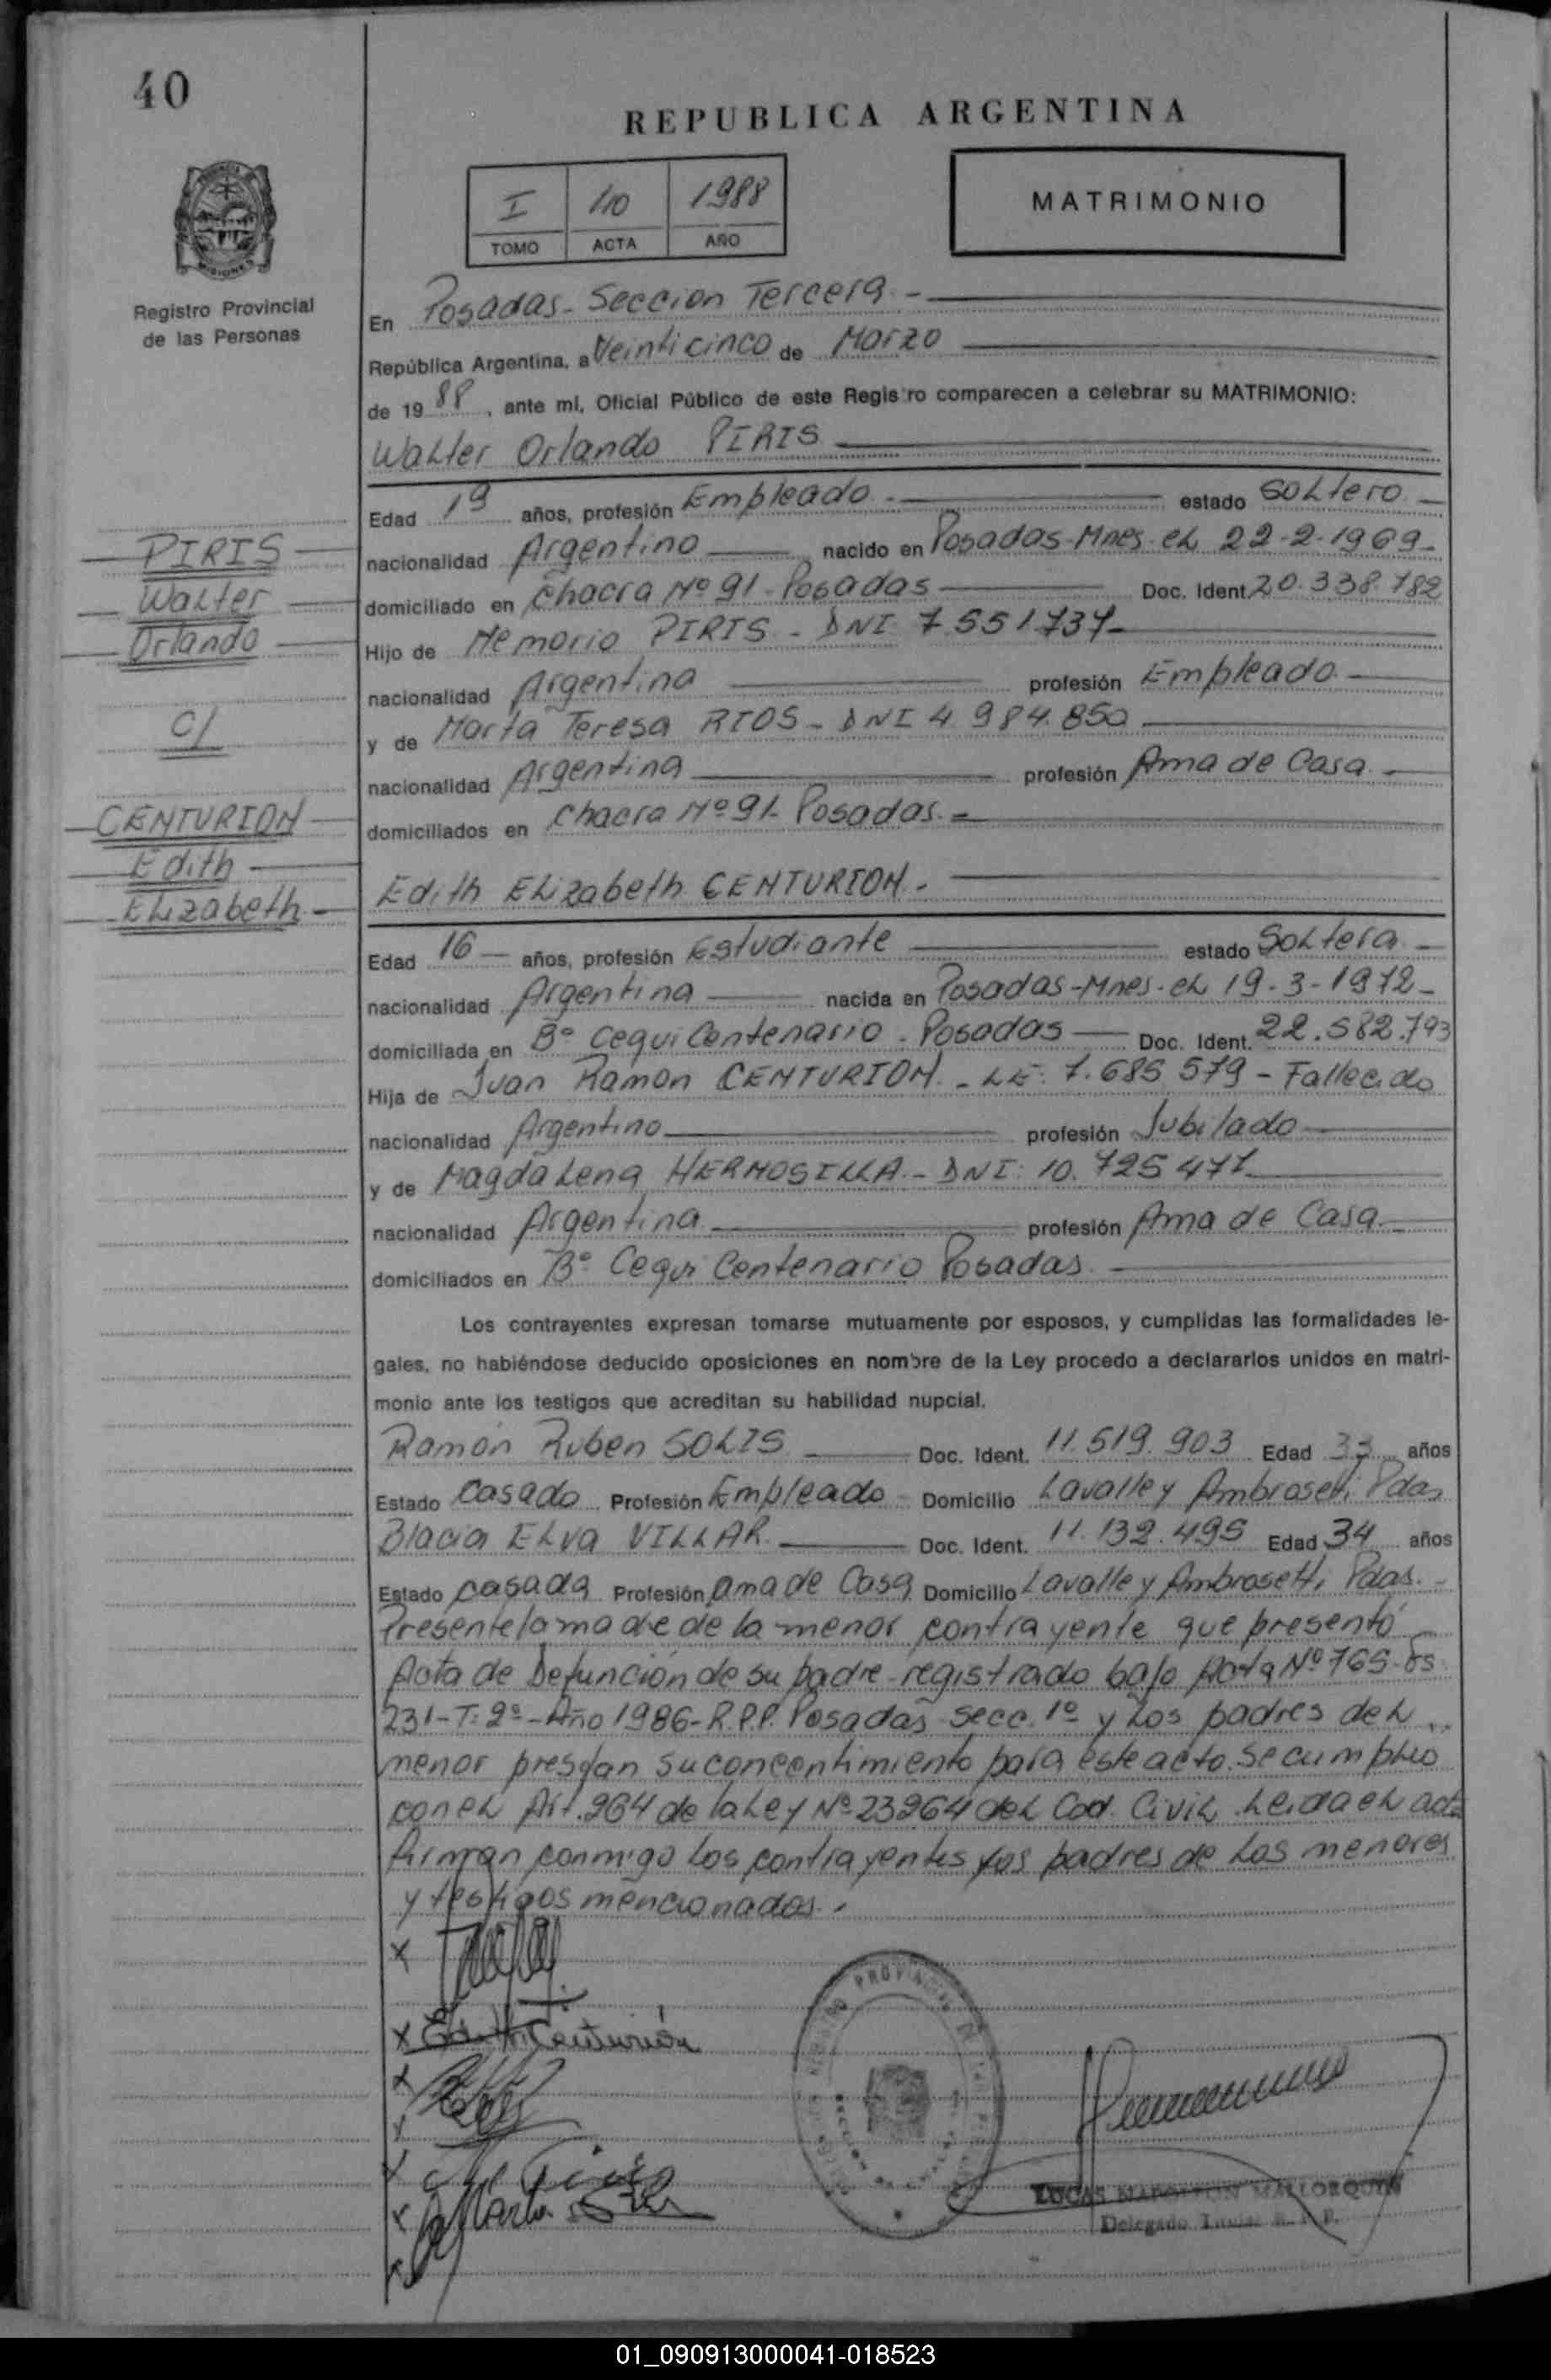 40
REPUBLICA ARGENTINA
I 40 1988
TOMO ACTA AÑO
MATRIMONIO
MISIONES
Registro Provincial
de las Personas
En Posadas - Seccion Tercera -
República Argentina, a Veinticinco de Marzo
de 1988, ante mí, Oficial Público de este Registro comparecen a celebrar su MATRIMONIO:
Walter Orlando PIRIS
Edad 19 años, profesión Empleado - estado Soltero
nacionalidad Argentino nacido en Posadas-Mnes. el 22-2-1969-
domiciliado en Chacra Nº 91 - Posadas Doc. Ident. 20.338.782
Hijo de Memorio PIRIS - DNI 7.551.737-
nacionalidad Argentina profesión Empleado
y de Marta Teresa RIOS - DNI 4.984.850
nacionalidad Argentina profesión Ama de Casa
domiciliados en Chacra Nº 91 - Posadas. -
PIRIS
Walter
Orlando
C/
CENTURION
Edith
Elizabeth -
Edith Elizabeth CENTURION. -
Edad 16 años, profesión Estudiante estado Soltera
nacionalidad Argentina nacida en Posadas-Mnes. el 19-3-1972-
domiciliada en Bº Cequi Centenario - Posadas Doc. Ident. 22.582.793
Hija de Juan Ramon CENTURION - LE: 7.685 579 - Fallecido
nacionalidad Argentino profesión Jubilado
y de Magdalena HERMOSILLA - DNI: 10.725 471
nacionalidad Argentina profesión Ama de Casa
domiciliados en Bº Cequi Centenario Posadas
Los contrayentes expresan tomarse mutuamente por esposos, y cumplidas las formalidades le-
gales, no habiéndose deducido oposiciones en nombre de la Ley procedo a declararlos unidos en matri-
monio ante los testigos que acreditan su habilidad nupcial.
Ramón Ruben SOLIS Doc. Ident. 11.519.903 Edad 33 años
Estado Casado Profesión Empleado Domicilio Lavalle y Ambrosetti Pdas
Elva VILLAR. Doc. Ident. 11.132.495 Edad 34 años
Estado casada Profesión ama de Casa Domicilio Lavalle y Ambrosetti Pdas. -
Presente la madre de la menor contrayente que presentó
Acta de Defunción de su padre registrado bajo Acta Nº 765-
231-T: 2º-Año 1986-R.P.P. Posadas Secc. 1º y Los padres del
menor prestan su concentimiento para este acto. Se cumplio
con el Art. 264 de la Ley Nº 23264 del Cod. Civil. Leida el acta
firman conmigo los contrayentes los padres de los menores
y testigos mencionados. -
x
x Edith Centurión
x
x
x
x Marta
x
LUCAS NAPOLEON MALLORQUIN
Delegado Titular R. P. P.
01_090913000041-018523